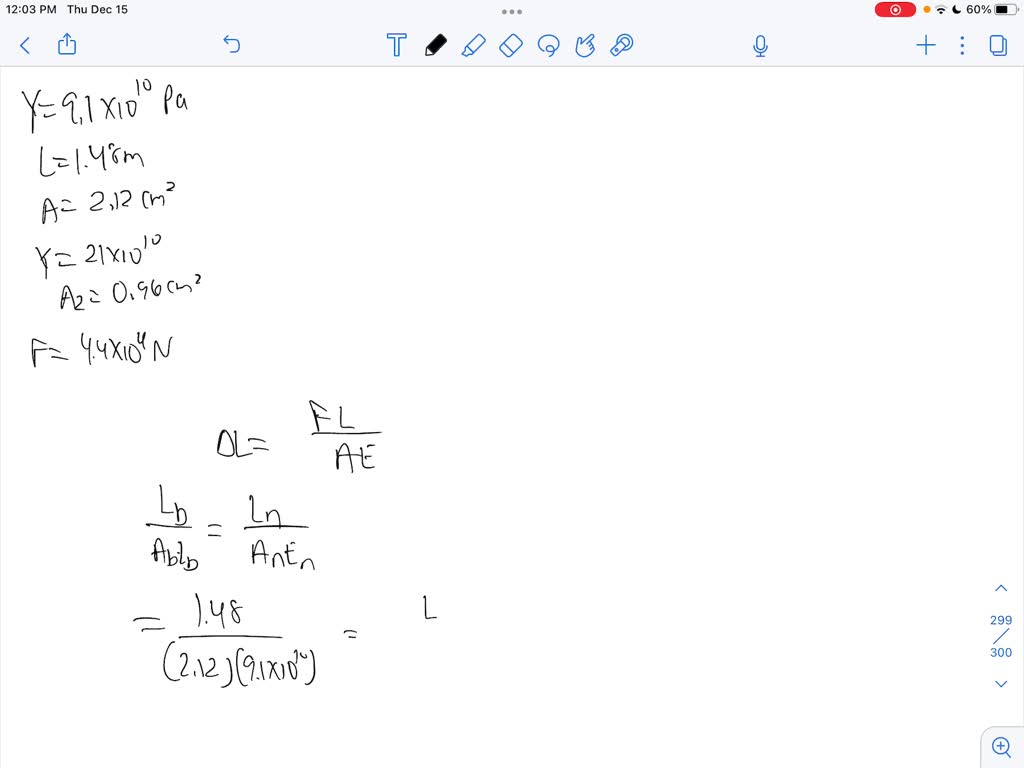 12:03 PM Thu Dec 15
60%
Y=9.1×10^10 Pa
L=1.48m
A=2.12 cm^2
Y=21×10^10
A2=0.96 cm^2
F=4.4×10^4 N
ΔL= FL/AE
Lb/AbEb = Ln/AnEn
= 1.48/(2.12)(9.1×10^10) = L
299
/
300